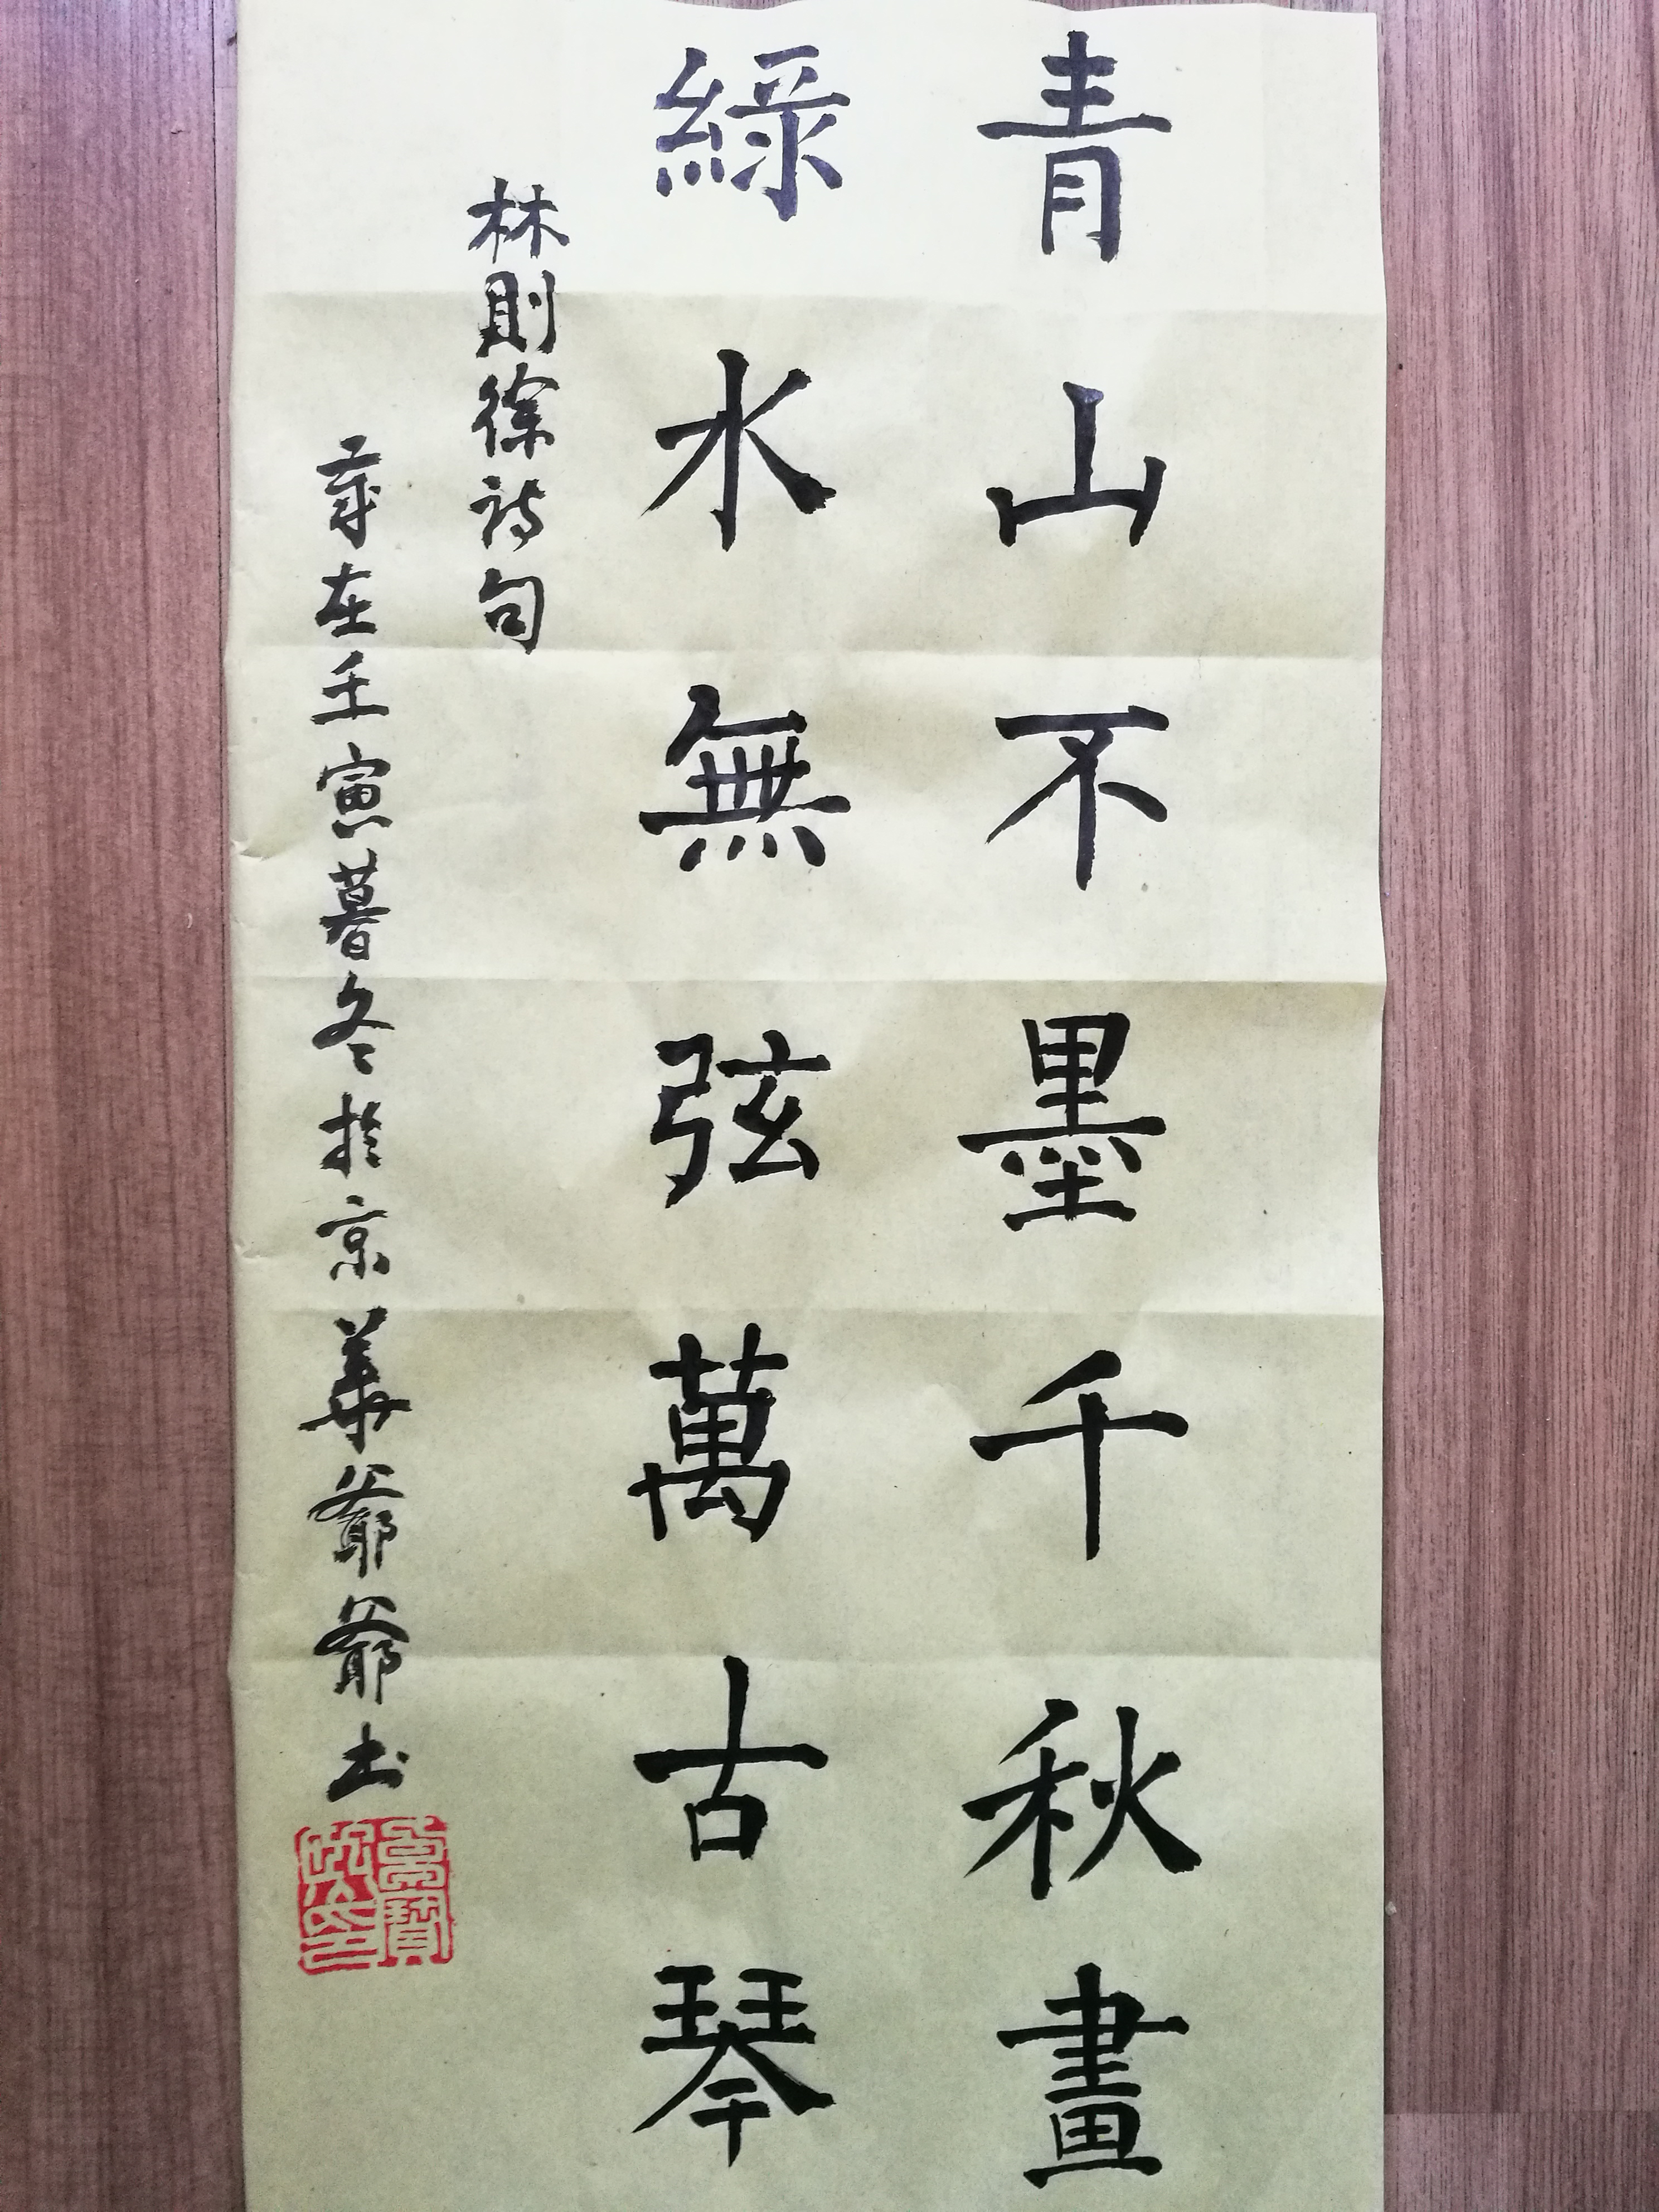 青山不墨千秋畫
綠水無弦萬古琴
林則徐詩句
歲在壬寅暮冬於京華爺爺书